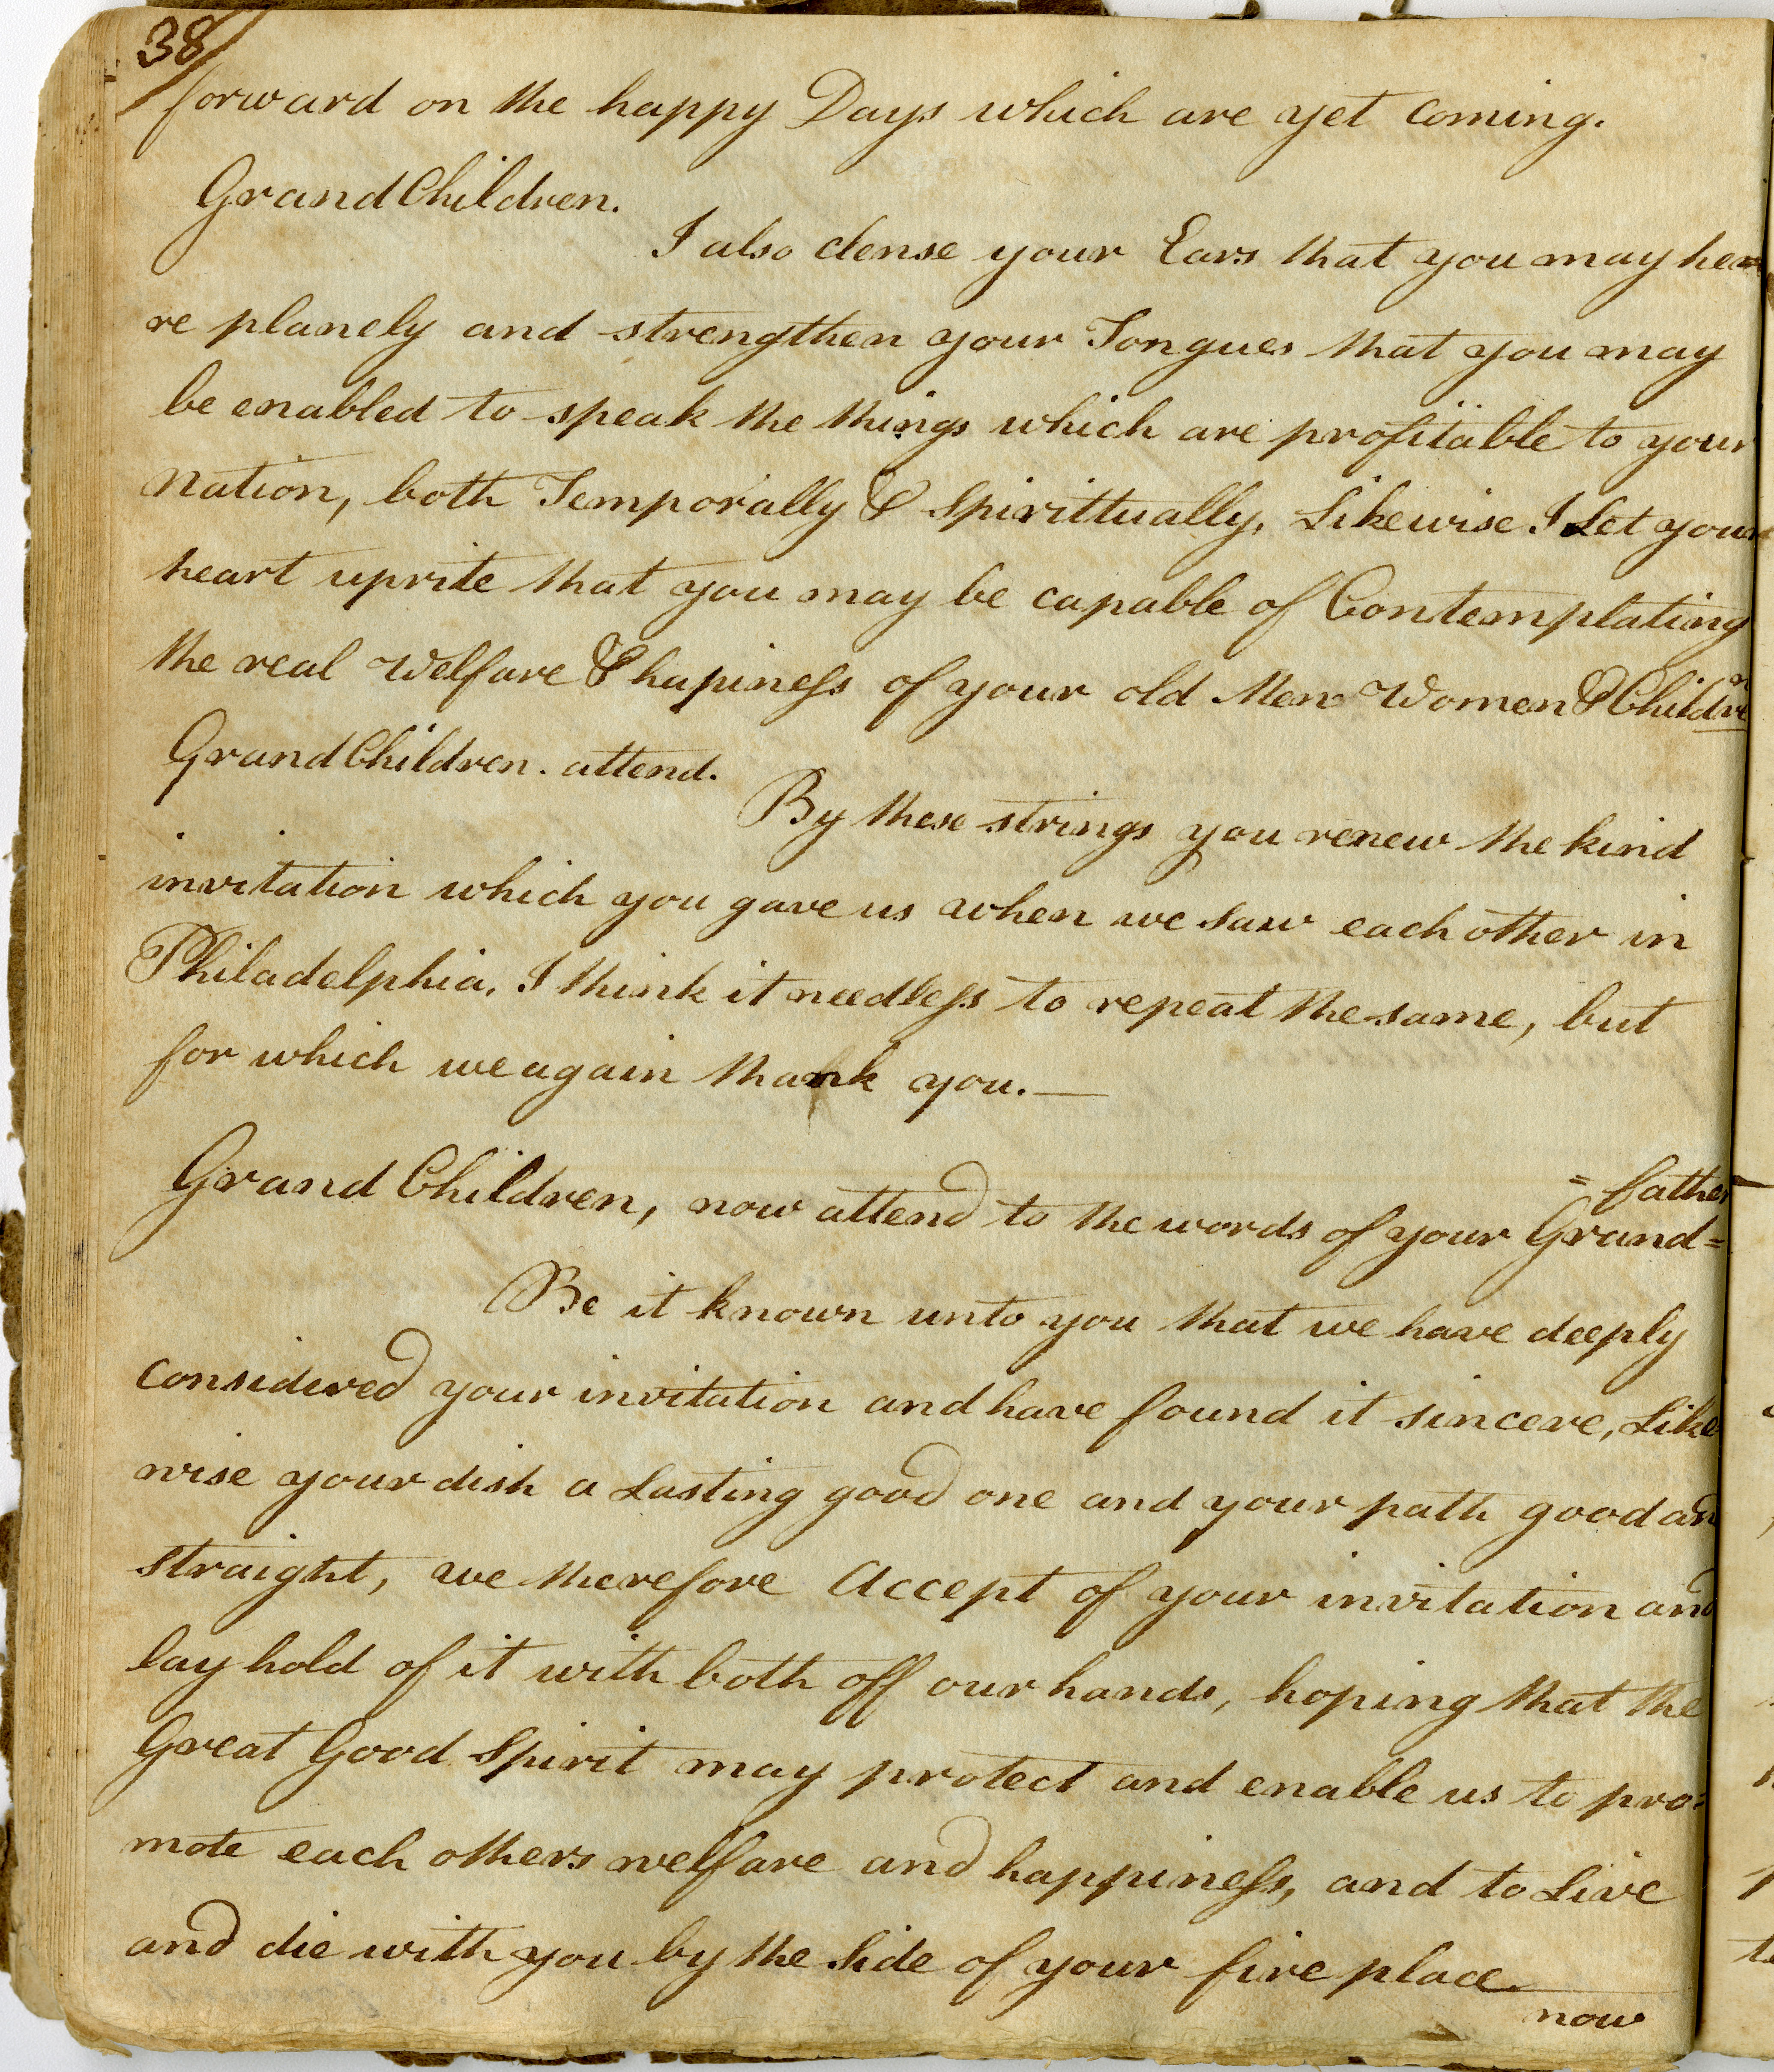 38/
forward on the happy Days which are yet coming.
Grand Children.
I also clense your Ears that you may hea=
re planely and strengthen your Tongues that you may
be enabled to speak the things which are profitable to your
Nation, both Temporally & Spirittually, Likewise I Let your
heart uprite that you may be capable of Contemplating
the real Welfare & hapiness of your old Men Women & Children
Grand Children. attend.
By these strings you renew the kind
invitation which you gave us when we saw each other in
Philadelphia, I think it needless to repeat the same, but
for which we again thank you.—
Grand Children, now attend to the words of your Grand=
=father
Be it known unto you that we have deeply
considered your invitation and have found it sincere, Like
wise your dish a Lasting good one and your path good and
straight, we therefore Accept of your invitation and
lay hold of it with both off our hands, hoping that the
Great Good Spirit may protect and enable us to pro=
mote each others welfare and happiness, and to Live
and die with you by the Side of your fire place
now